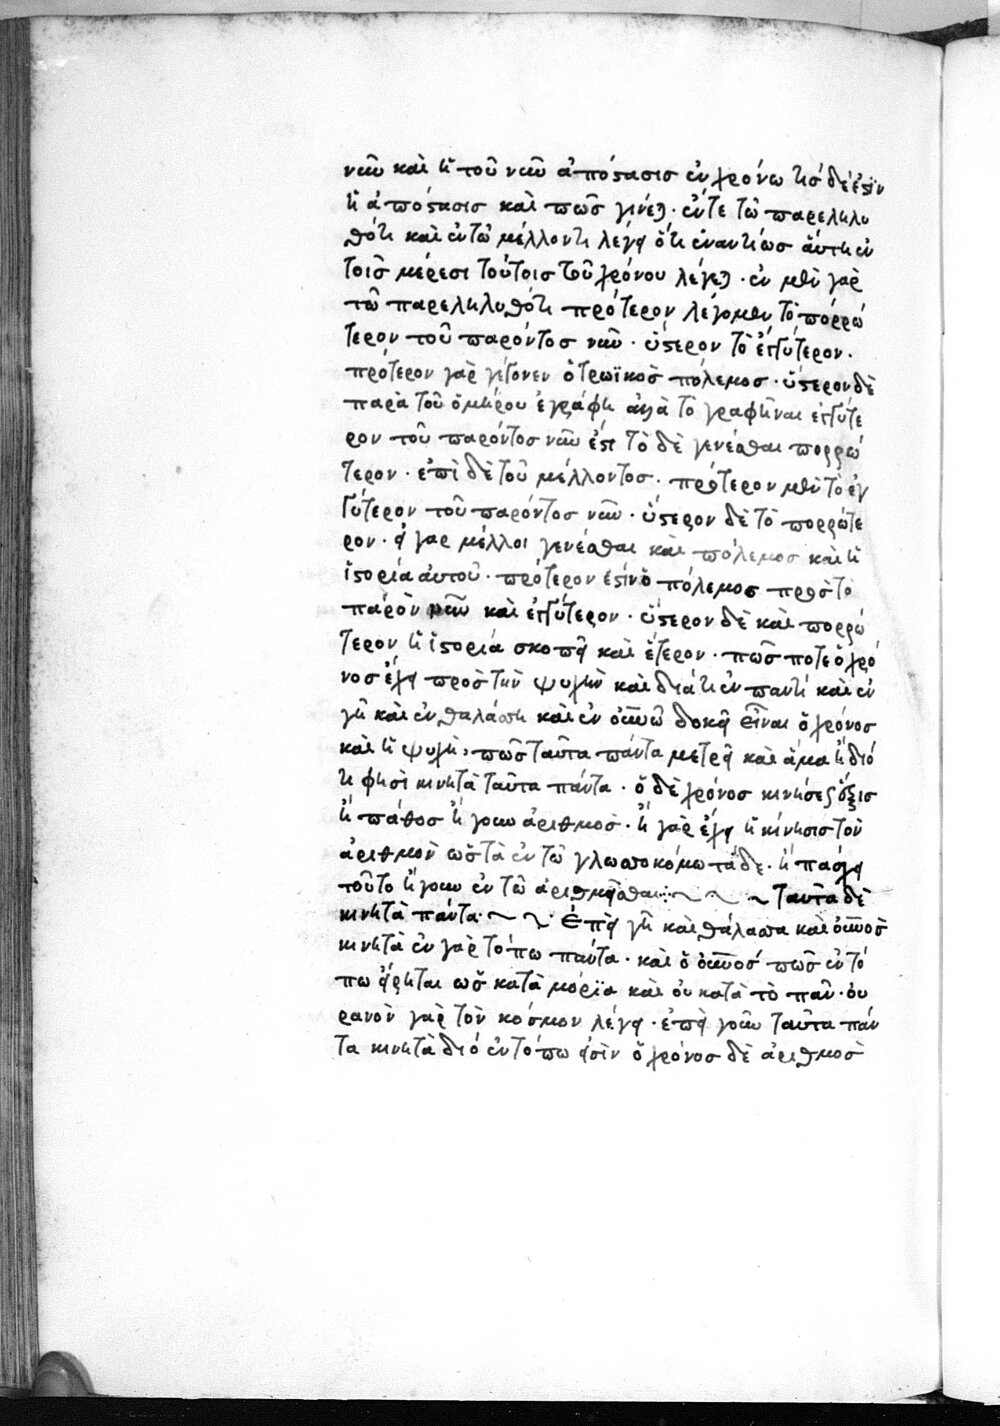 νῦν καὶ ἡ τοῦ νῦν ἀπόστασις ἐν χρόνω τίς δέ ἐστιν
ἡ ἀπόστασις καὶ πῶς γίνεται · ἔν τε τῶ παρεληλυ
θότι καὶ ἐν τῶ μέλλοντι λέγει ὅτι ἐναντίως αὕτη ἐν
τοῖς μέρεσι τούτοις τοῦ χρόνου λέγεται · ἐν μὲν γὰρ
τῶ παρεληλυθότι πρότερον λέγομεν τὸ πορρώ
τερον τοῦ παρόντος νῦν · ὕστερον τὸ ἐγγύτερον ·
πρότερον γὰρ γέγονεν ὁ τρωϊκὸς πόλεμος · ὕστερον δὲ
παρὰ τοῦ ὁμήρου ἐγράφη ἀλλὰ τὸ γραφῆναι ἐγγύτε
ρον τοῦ παρόντος νῦν ἐστι τὸ δὲ γενέσθαι πορρώ
τερον · ἐπὶ δὲ τοῦ μέλλοντος · πρότερον μὲν τὸ ἐγ
γύτερον τοῦ παρόντος νῦν · ὕστερον δὲ τὸ πορρώτε
ρον · εἰ γὰρ μέλλοι γενέσθαι καὶ πόλεμος καὶ ἡ
ἱστορία αὐτοῦ · πρότερόν ἐστιν ὁ πόλεμος πρὸς τὸ
παρὸν νῦν καὶ ἐγγύτερον · ὕστερον δὲ καὶ πορρώ
τερον ἡ ἱστορία σκοπεῖ καὶ ἕτερον · πῶς ποτε ὁ χρό
νος ἔχει πρὸς τὴν ψυχὴν καὶ διὰ τί ἐν παντί καὶ ἐν
γῆ καὶ ἐν θαλάττη καὶ ἐν οὐνῶ δοκεῖ εἶναι ὁ χρόνος
καὶ ἡ ψυχὴ, πῶς ταῦτα πάντα μετρεῖ καὶ ἅμα ἢ διό
τι φησὶ κινητὰ ταῦτα πάντα · ὁ δὲ χρόνος κινήσεως ἕξις
ἢ πάθος ἤγουν ἀριθμὸς · ἢ γὰρ ἔχει ἡ κίνησις τὸν
ἀριθμὸν ὡς τὰ ἐν τῶ γλωττοκόμω τάδε · ἢ πάσχει
τοῦτο ἤγουν ἐν τῶ ἀριθμεῖσθαι : ~ ~ ~ ταῦτα δὲ
κινητὰ πάντα · ~ ~ · ἐπεὶ γῆ καὶ θάλαττα καὶ οὐνὸς
κινητὰ ἐν γὰρ τόπω πάντα · καὶ ὁ οὐνός πῶς ἐν τό
πω εἴρηται ὡς κατὰ μόρϊα καὶ οὐ κατὰ τὸ πᾶν · οὐ
ρανὸν γὰρ τὸν κόσμον λέγει · ἐπεὶ γοῦν ταῦτα πάν
τα κινητὰ διό ἐν τόπω εἰσὶν ὁ χρόνος δὲ ἀριθμὸς